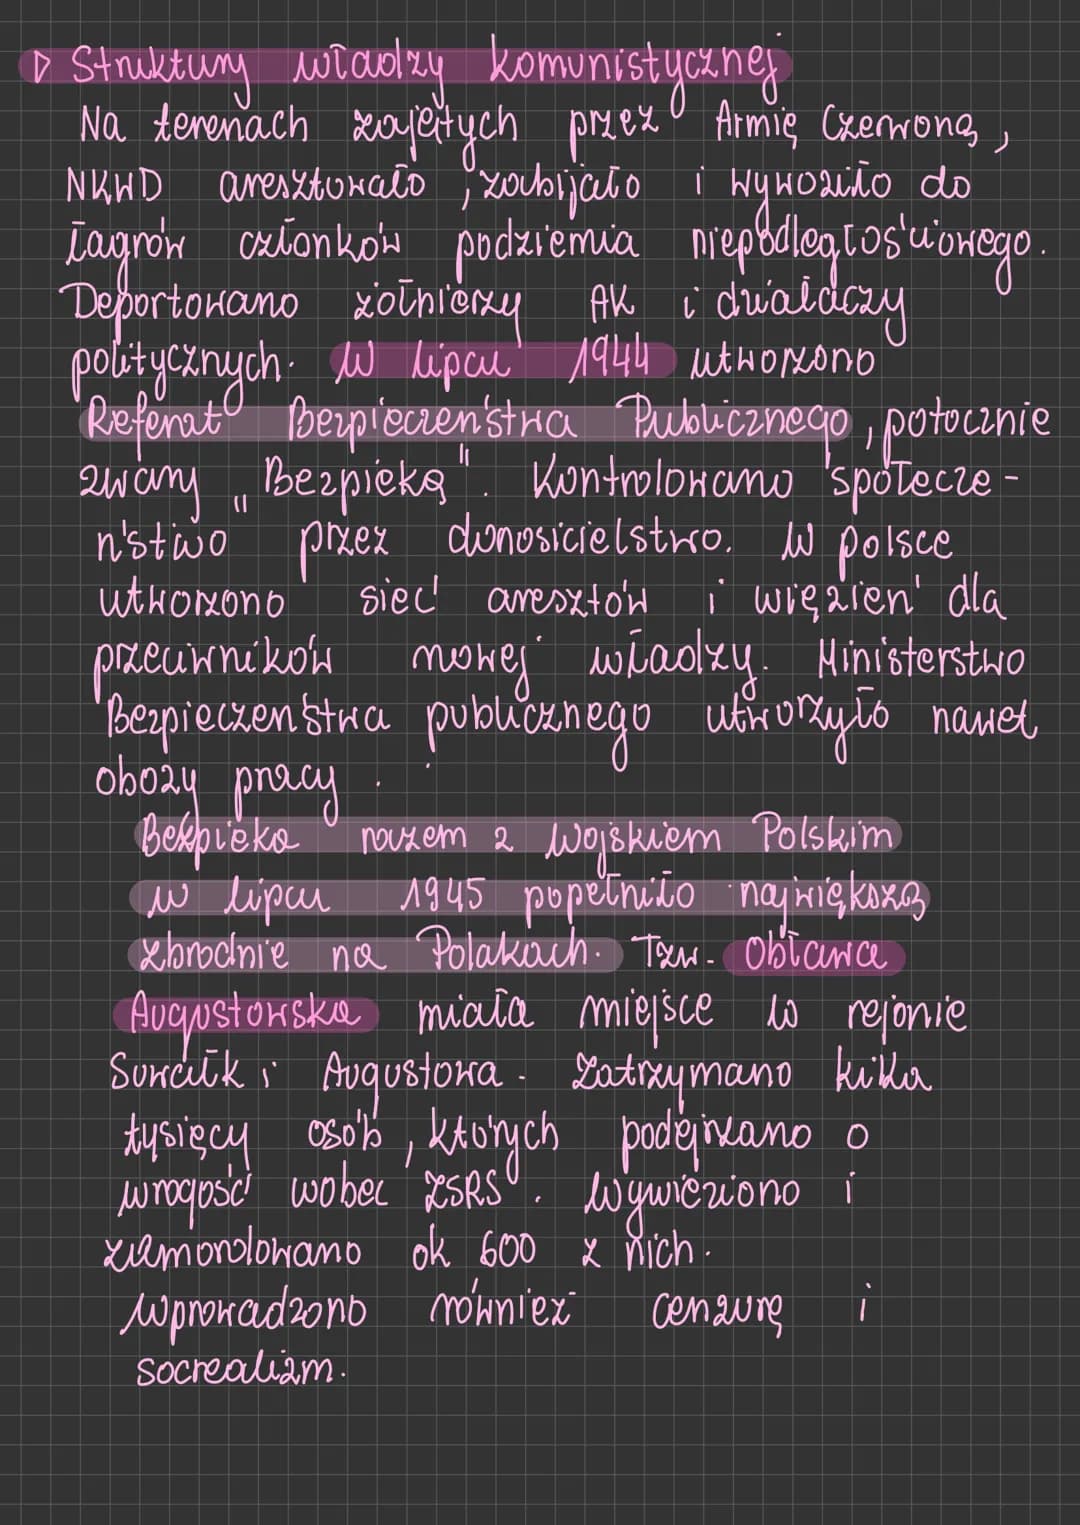 ▷ Struktury władzy komunistycznej
Na terenach zajętych przez Armię Czerwoną,
NKWD aresztowało, zabijało i wywoziło do
łagrów członków podziemia niepodległościowego.
Deportowano żołnierzy AK i działaczy
politycznych. W lipcu 1944 utworzono
Referat Bezpieczeństwa Publicznego, potocznie
zwany „Bezpieką". Kontrolowano społecze-
ństwo przez donosicielstwo. W polsce
utworzono sieć aresztów i więzień dla
przeciwników nowej władzy. Ministerstwo
Bezpieczeństwa publicznego utworzyło nawet
obozy pracy.
Bezpieka razem z wojskiem Polskim
w lipcu 1945 popełniło największą
zbrodnie na Polakach. Tzw. Obława
Augustowska miała miejsce w rejonie
Suwałk i Augustowa. Zatrzymano kilka
tysięcy osób, których podejrzano o
wrogość wobec ZSRS. Wywieziono i
zamordowano ok 600 z nich.
Wprowadzono również cenzurę i
socrealizm.